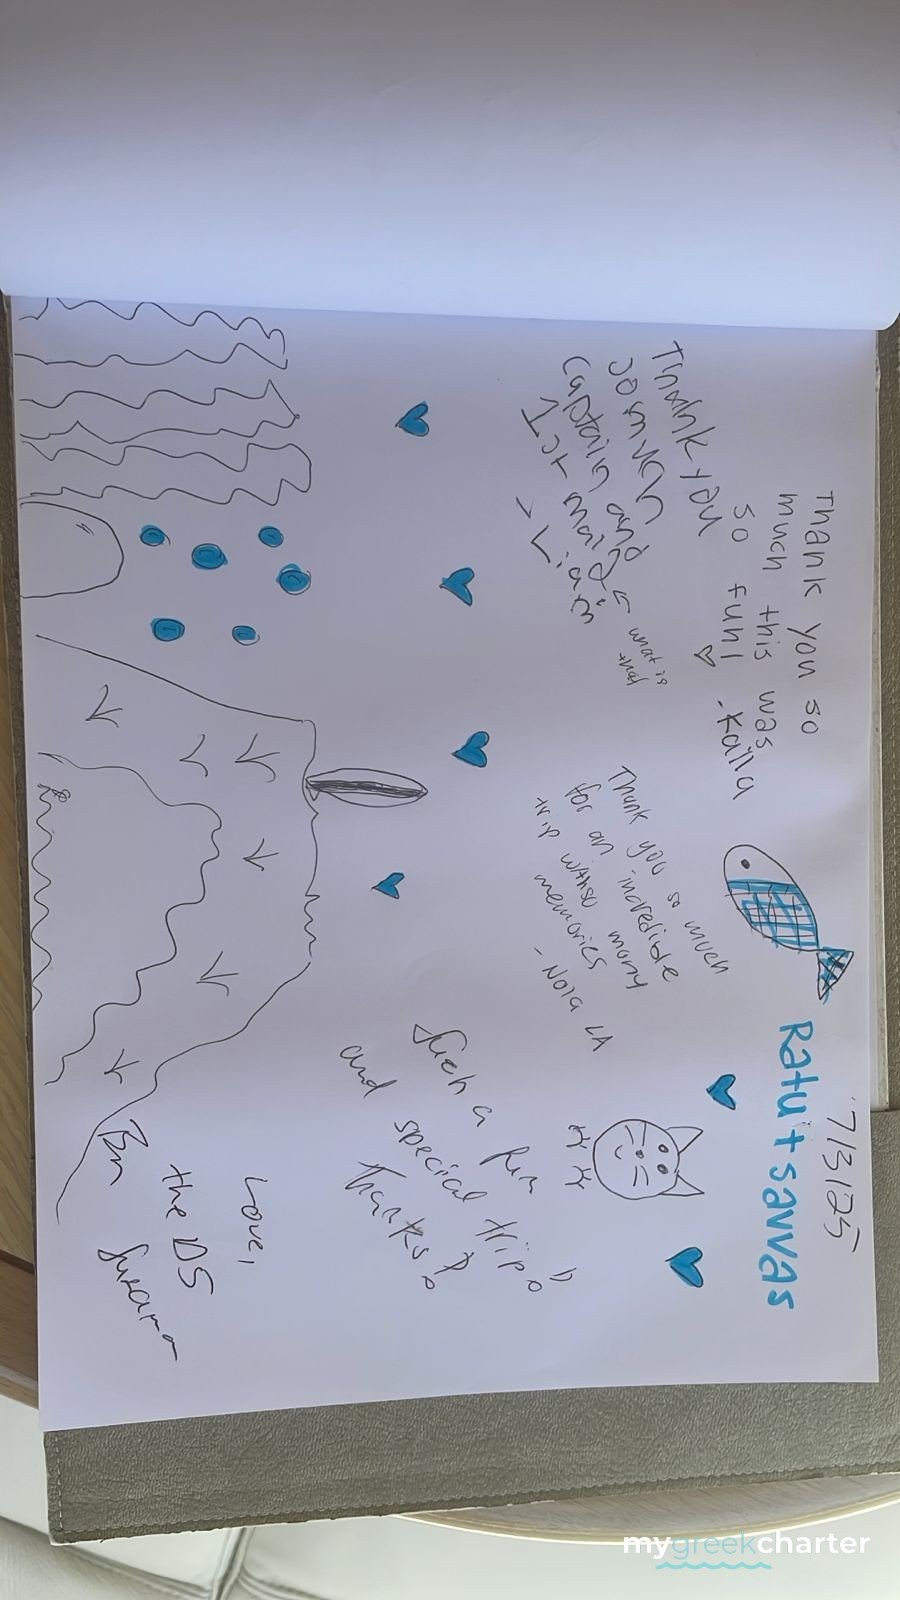 7/3/25
Ratu + Savvas
Thank you so
much this was
so fun!
- Kaila
Thank you
so much
Captain and
1st maid
what is
that
- Liam
Thank you so much
for an incredible
trip with so many
memories
- Nola LA
Such a fun
and special trip!
Thanks!
Love,
the DS
mygreekcharter